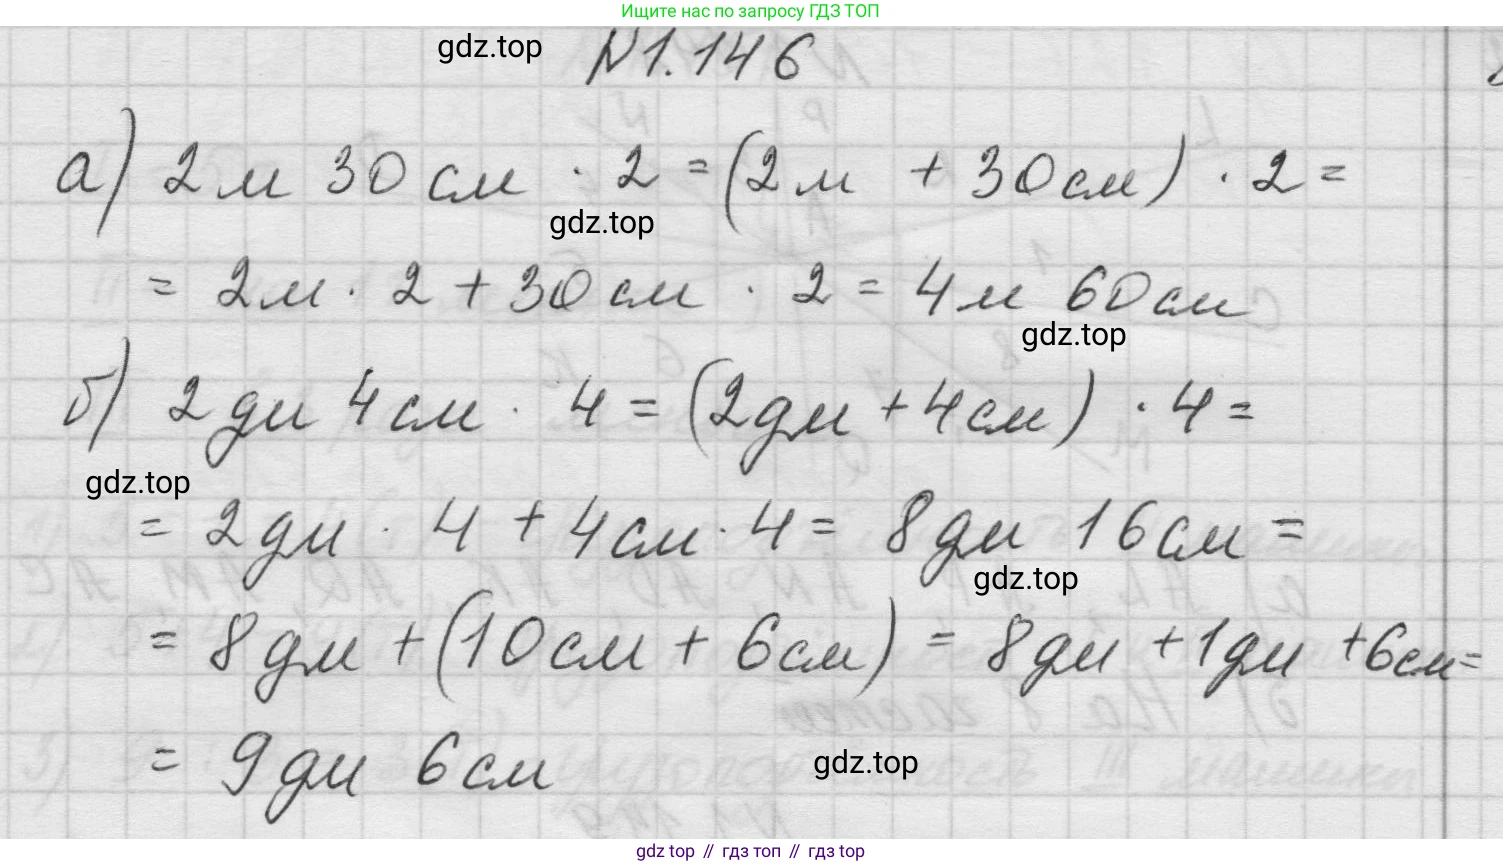 Ищите нас по запросу ГДЗ ТОП
gdz.top
N1.146
а) 2 м 30 см · 2 = (2 м + 30 см) · 2 =
gdz.top
= 2 м · 2 + 30 см · 2 = 4 м 60 см
gdz.top
б) 2 дм 4 см · 4 = (2 дм + 4 см) · 4 =
gdz.top
= 2 дм · 4 + 4 см · 4 = 8 дм 16 см =
gdz.top
= 8 дм + (10 см + 6 см) = 8 дм + 1 дм + 6 см =
= 9 дм 6 см
gdz.top
gdz top // гдз топ // гдз top